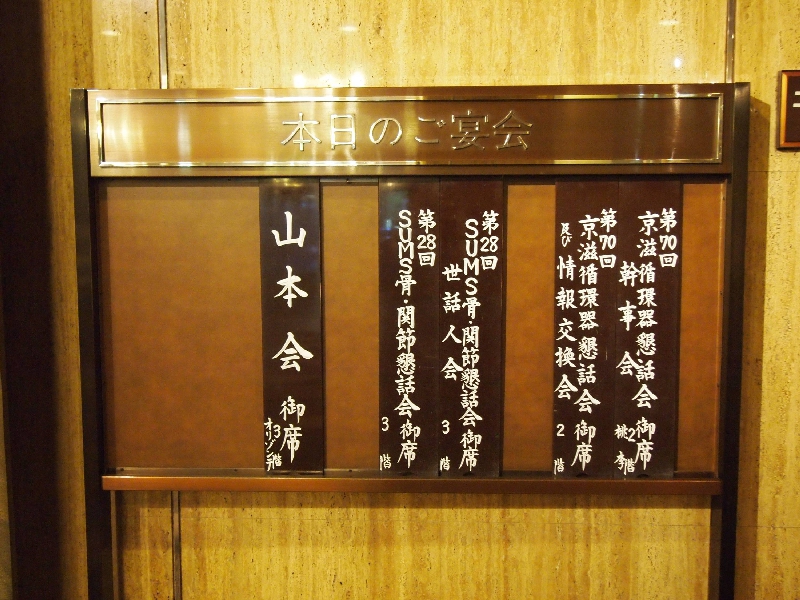 本日のご宴会
第70回
京滋循環器懇話会御席
幹事会
2階
桃李
第70回
京滋循環器懇話会御席
及び情報交換会
2階
第28回
SUMS骨・関節懇話会御席
世話人会
3階
第28回
SUMS骨・関節懇話会御席
3階
山本会御席
3階